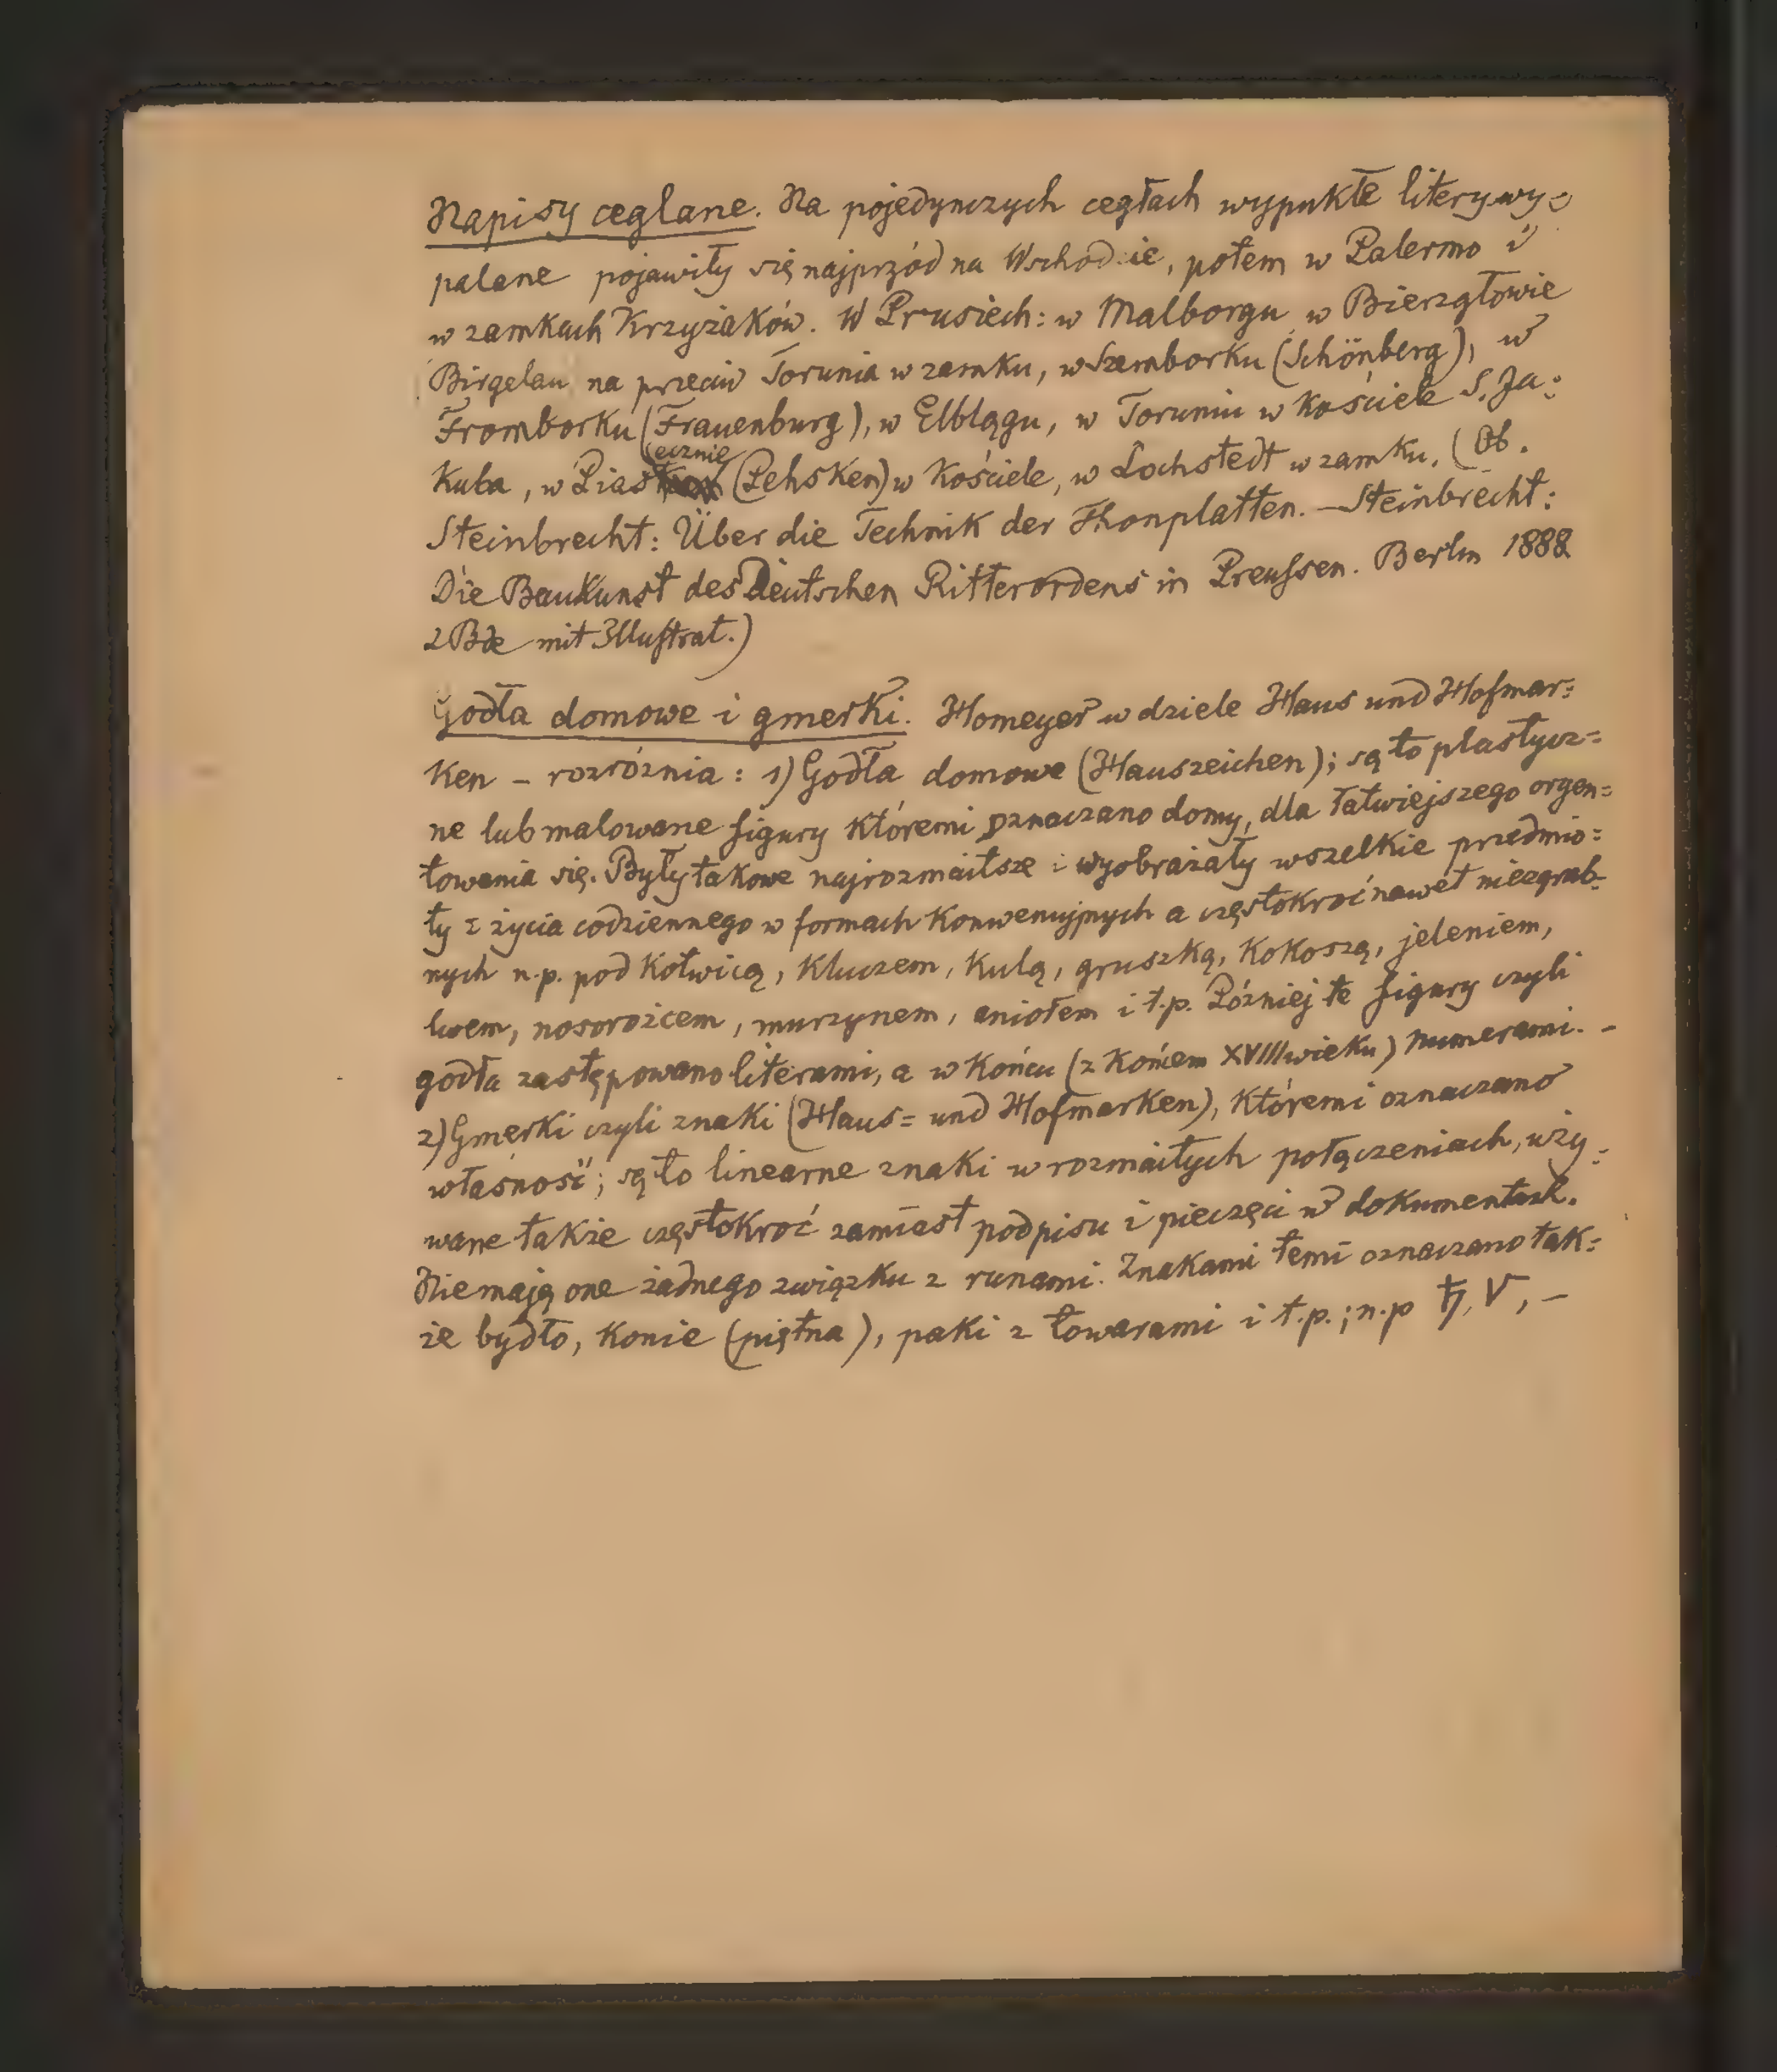 Napisy ceglane. Na pojedynczych cegłach wypukłe litery wy=
palane pojawiły się najprzód na Wschodzie, potem w Palermo i
w zamkach Krzyżaków. W Prusiech: w Malborgu, w Bierzgłowie
Birgelau na przeciw Torunia w zamku, w Szemborku (Schönberg), w
Fromborku (Frauenburg), w Elblągu, w Toruniu w kościele S. Ja=
kuba, w Piasecznie (Pehsken) w kościele, w Lochstedt w zamku. (Ob.
Steinbrecht: Über die Technik der Thonplatten. – Steinbrecht:
Die Baukunst des Deutschen Ritterordens in Preussen. Berlin 1888
2 Bde mit Illustrat.)
Godła domowe i gmerki. Homeyer w dziele Haus und Hofmar=
ken – rozróżnia: 1) Godła domowe (Hauszeichen); są to plastycz=
ne lub malowane figury któremi oznaczano domy, dla łatwiejszego orgen=
towania się. Były takowe najrozmaitsze i wyobrażały wszelkie przedmio=
ty z życia codziennego w formach konwencyjnych a częstokroć nawet niezgrab=
nych n.p. pod kotwicą, kluczem, kulą, gruszką, kokoszą, jeleniem,
lwem, nosorożcem, murzynem, aniołem i t.p. Później te figury czyli
godła zastępowano literami, a w końcu (z końcem XVIII wieku) numerami. –
2) Gmerki czyli znaki (Haus= und Hofmarken), któremi oznaczano
własność; są to linearne znaki w rozmaitych połączeniach, uży=
wane także częstokroć zamiast podpisu i pieczęci w dokumentach.
Nie mają one żadnego związku z runami. Znakami temi oznaczano tak=
że bydło, konie (piętna), paki z towarami i t.p.; n.p V, –